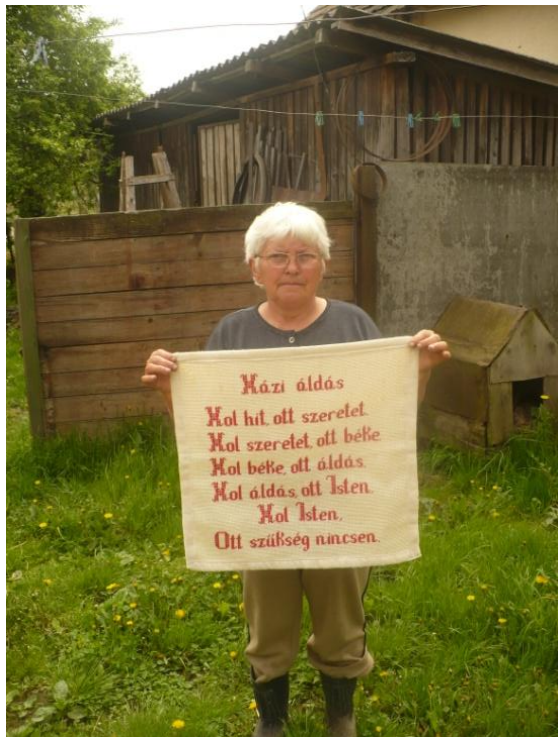 Házi áldás
Hol hit, ott szeretet.
Hol szeretet, ott béke.
Hol béke, ott áldás.
Hol áldás, ott Isten.
Hol Isten,
Ott szükség nincsen.